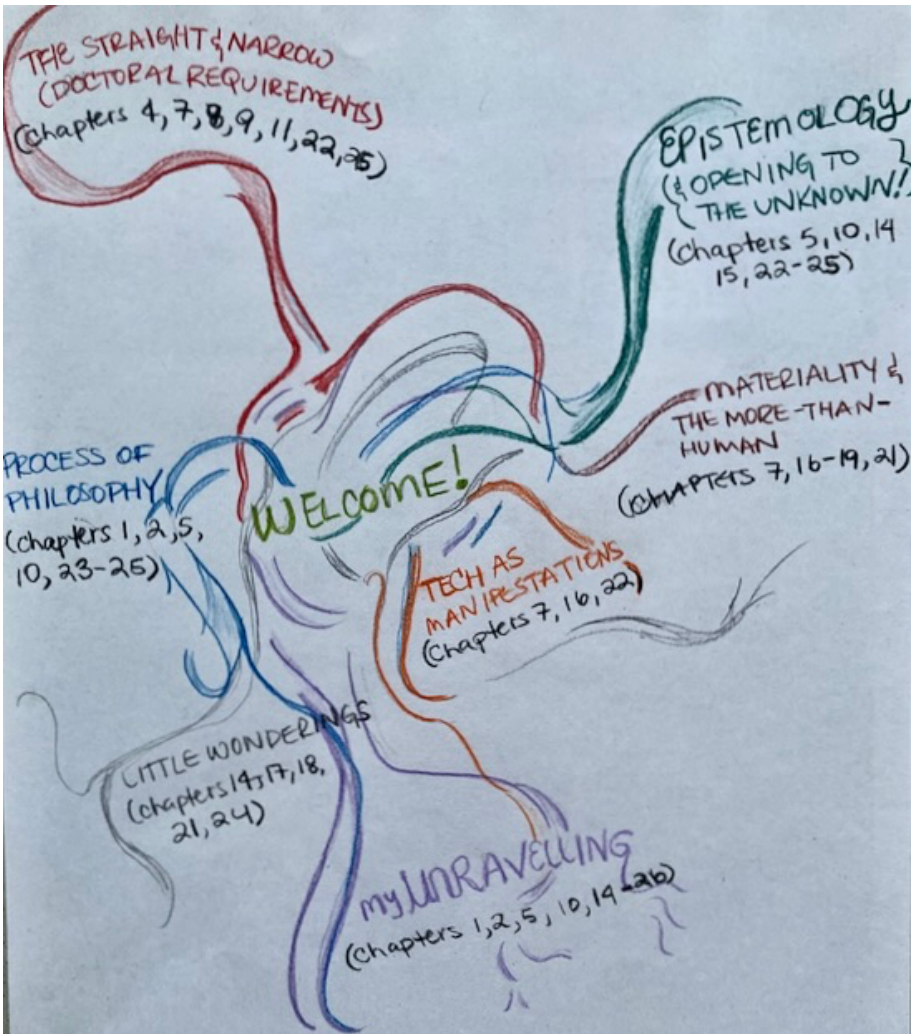 THE STRAIGHT & NARROW
(DOCTORAL REQUIREMENTS)
(chapters 4, 7, 8, 9, 11, 22, 25)
EPISTEMOLOGY
(& OPENING TO
THE UNKNOWN!)
(chapters 5, 10, 14
15, 22-25)
MATERIALITY &
THE MORE-THAN-
HUMAN
(CHAPTERS 7, 16-19, 21)
PROCESS OF
PHILOSOPHY
(chapters 1, 2, 5,
10, 23-25)
WELCOME!
TECH AS
MANIFESTATIONS
(chapters 7, 16, 22)
LITTLE WONDERINGS
(chapters 14, 17, 18,
21, 24)
my UNRAVELLING
(chapters 1, 2, 5, 10, 14-26)